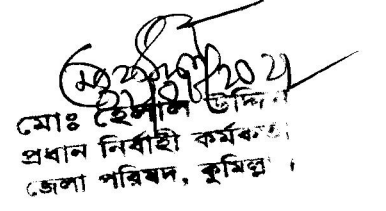 মোঃ হেলাল উদ্দিন
প্রধান নির্বাহী কর্মকর্তা
জেলা পরিষদ, কুমিল্লা ।